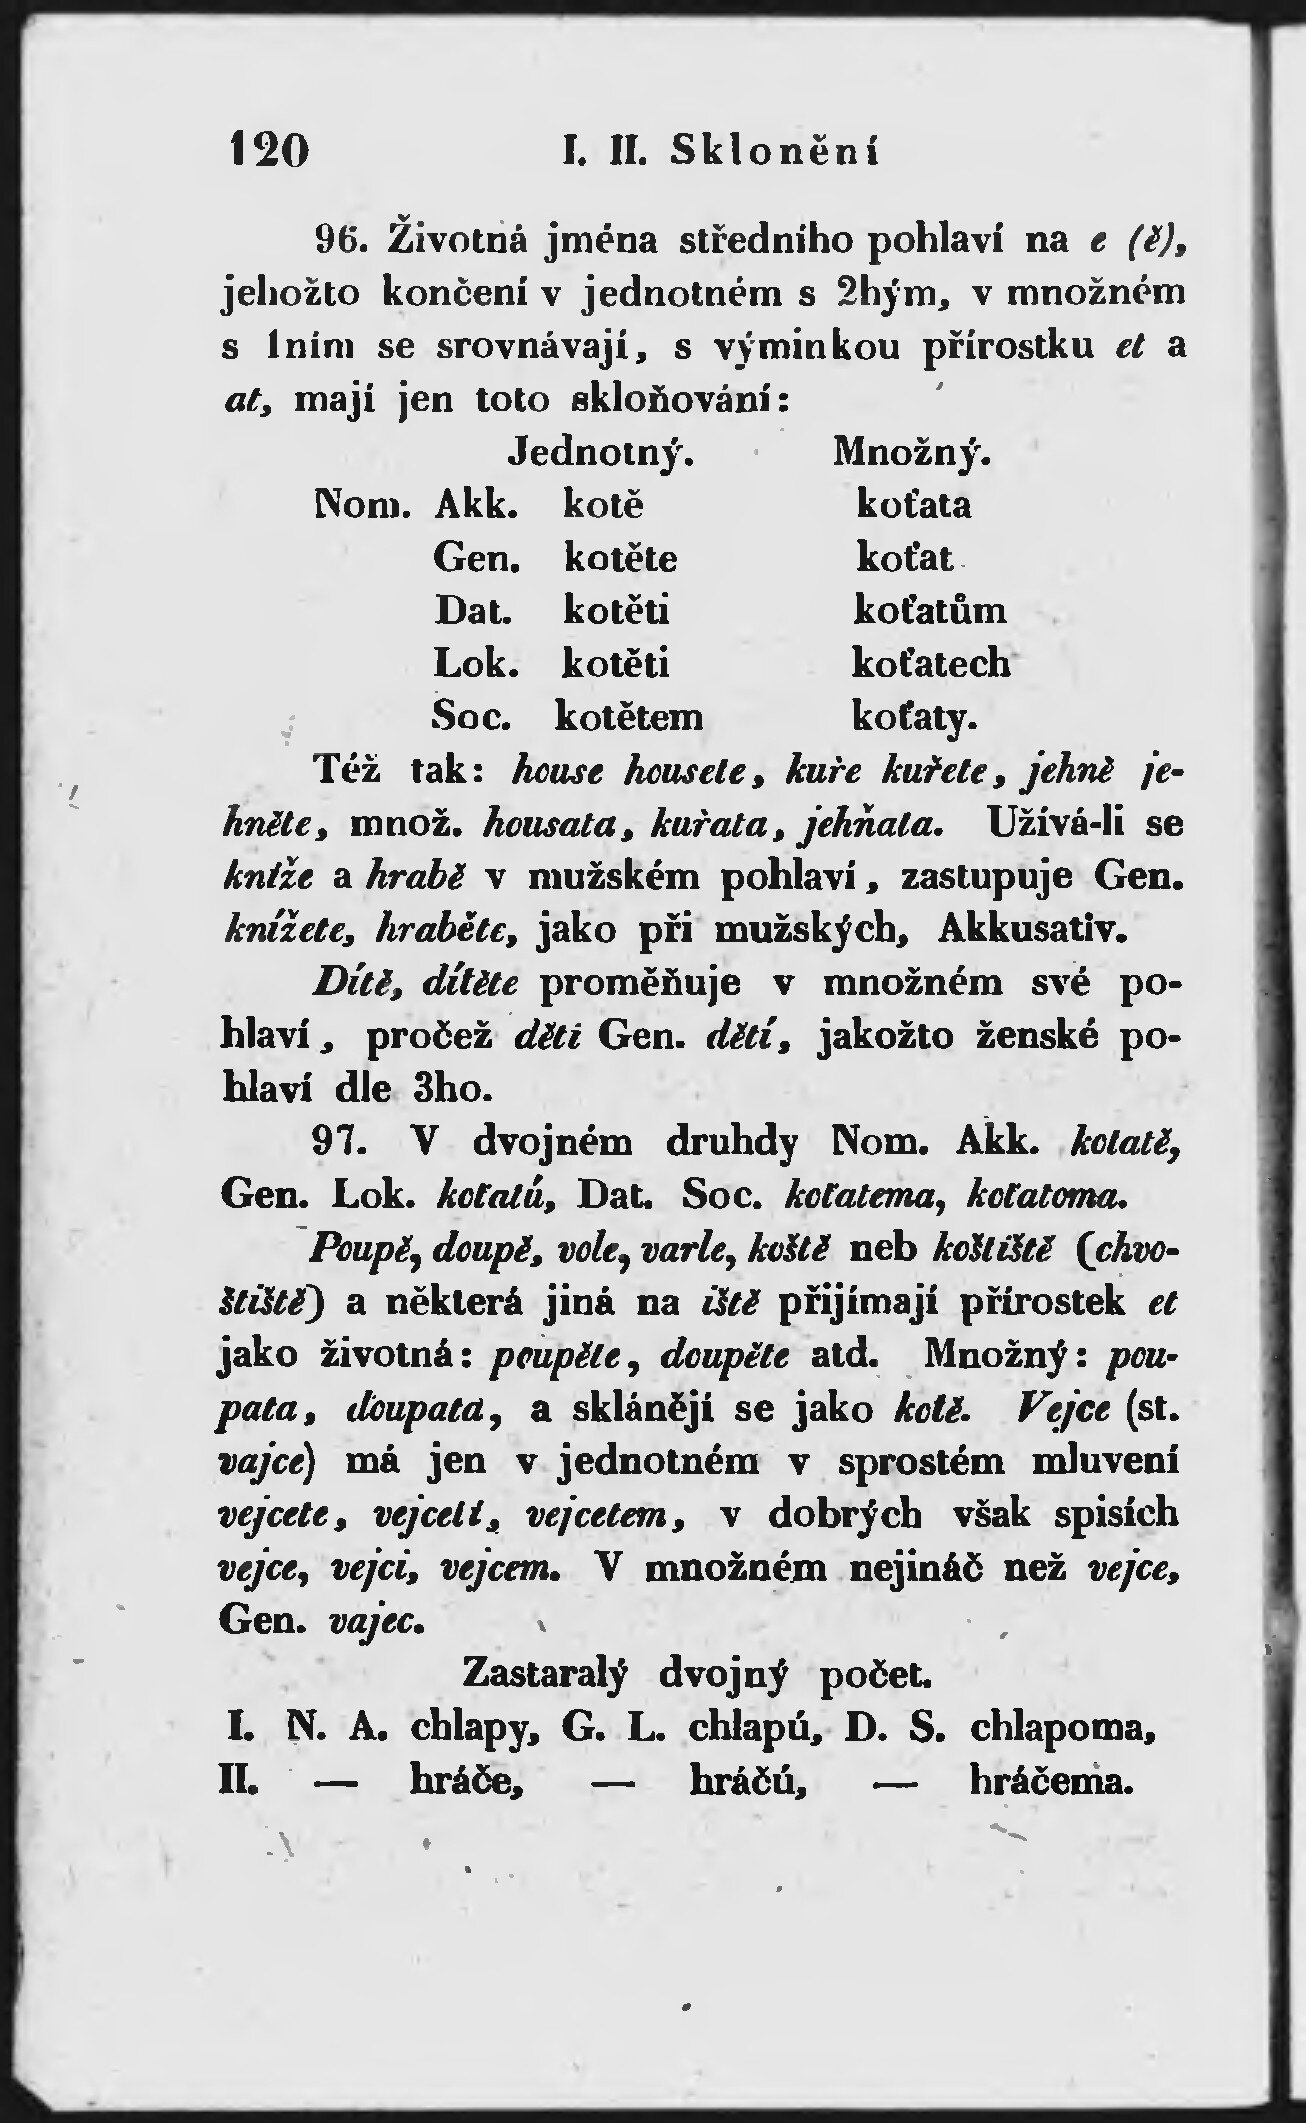 120 I. II. Sklonění
96. Životná jména středního pohlaví na e (ě),
jehožto končení v jednotném s 2hým, v množném
s 1ním se srovnávají, s výminkou přírostku et a
at, mají jen toto skloňování:
Jednotný. Množný.
Nom. Akk. kotě koťata
Gen. kotěte koťat
Dat. kotěti koťatům
Lok. kotěti koťatech
Soc. kotětem koťaty.
Též tak: house housete, kuře kuřete, jehně je-
hněte, množ. housata, kuřata, jehňata. Užívá-li se
kníže a hrabě v mužském pohlaví, zastupuje Gen.
knížete, hraběte, jako při mužských, Akkusativ.
Dítě, dítěte proměňuje v množném své po-
hlaví, pročež děti Gen. dětí, jakožto ženské po-
hlaví dle 3ho.
97. V dvojném druhdy Nom. Akk. kotatě,
Gen. Lok. koťatú, Dat. Soc. koťatema, koťatoma.
Poupě, doupě, vole, varle, koště neb koštiště (chvo-
štiště) a některá jiná na iště přijímají přírostek et
jako životná: poupěte, doupěte atd. Množný: pou-
pata, doupata, a sklánějí se jako kotě. Vejce (st.
vajce) má jen v jednotném v sprostém mluvení
vejcete, vejceti, vejcetem, v dobrých však spisích
vejce, vejci, vejcem. V množném nejináč než vejce,
Gen. vajec.
Zastaralý dvojný počet.
I. N. A. chlapy, G. L. chlapú, D. S. chlapoma,
II. — hráče, — hráčú, — hráčema.